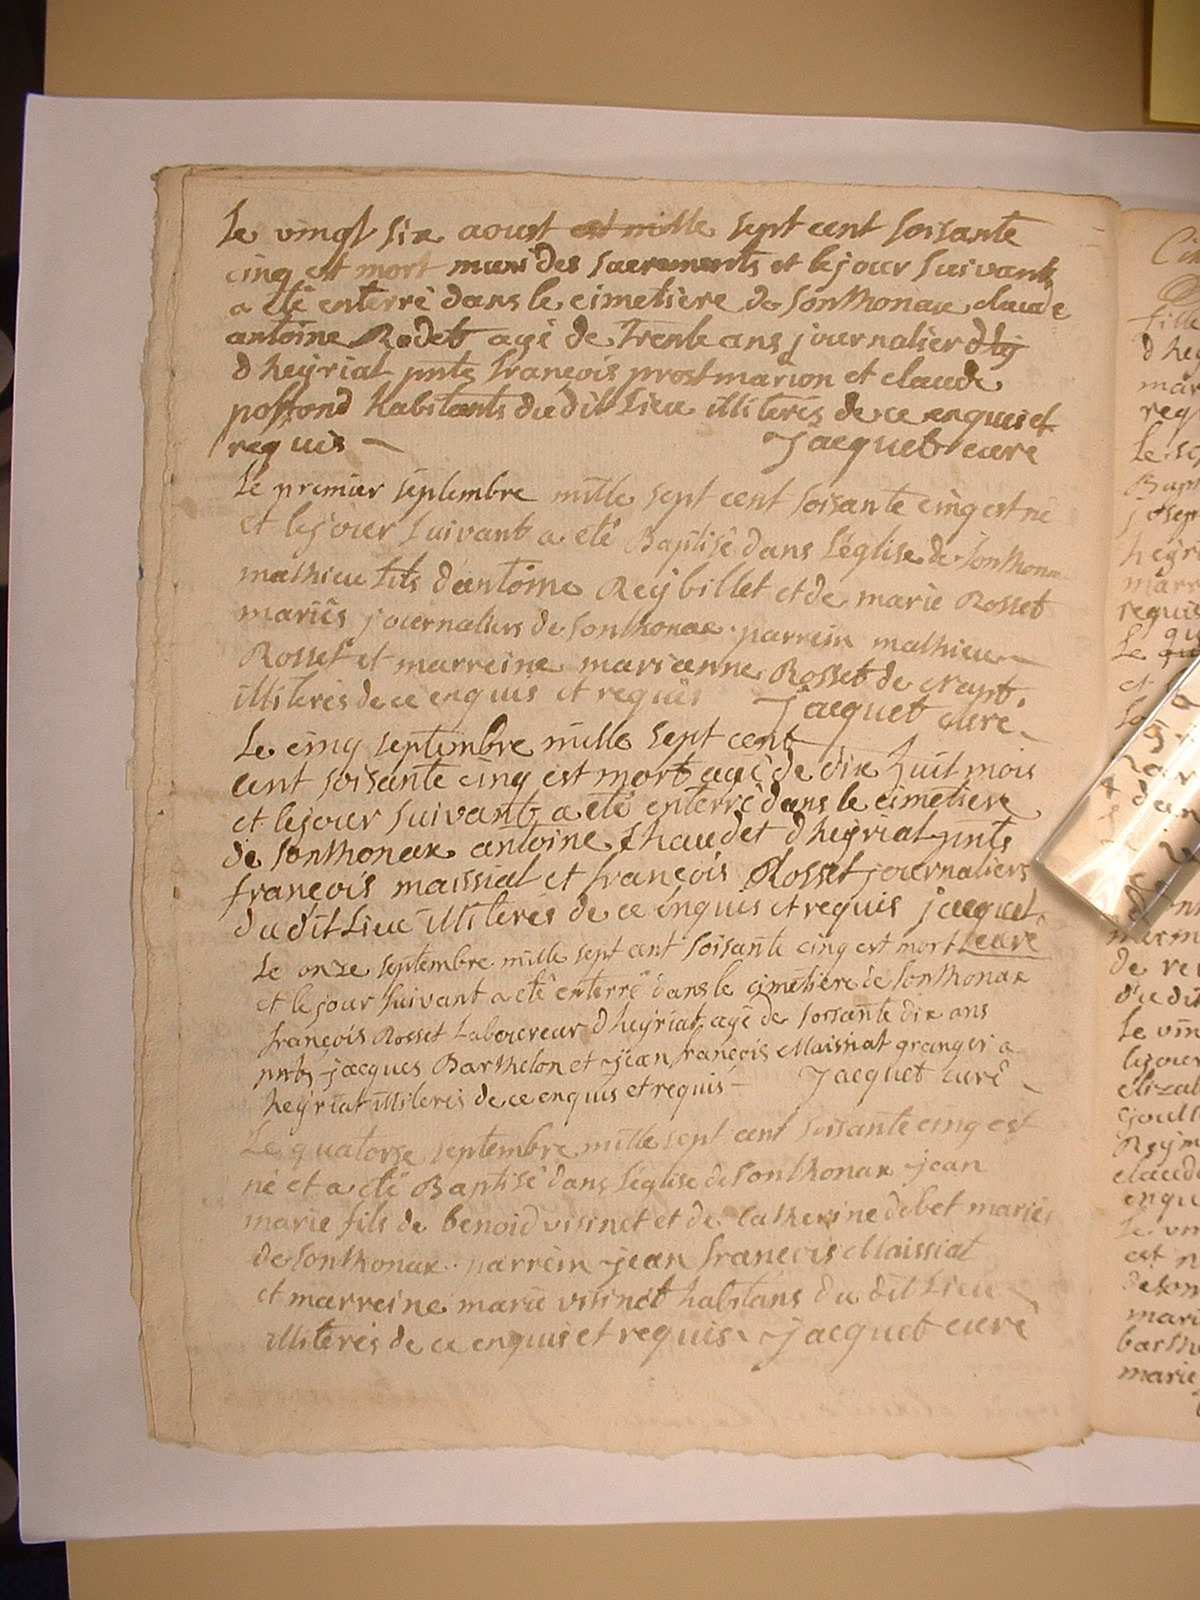 Le vingt six aoust est mille sept cent soisante
cinq est mort muni des sacrements et le jour suivant
a eté enterré dans le cimetiere de Sonthonax claude
antoine Rodet agé de trente ans journalier
d heyriat pnts françois prost marion et claude
possond habitants du dit Lieu illiterés de ce enquis et
requis Jacquet curé
Le premier septembre mille sept cent soisante cinq est né
et le jour suivant a eté Baptisé dans l'église de Sonthonax
mathieu fils d'antoine Reybillet et de marie Rosset
mariés journaliers de Sonthonax. parrein mathieu
Rosset et marreine marianne Rosset de
illiterés de ce enquis et requis Jacquet curé
Le cinq septembre mille sept cent
cent soisante cinq est mort agé de dix huit mois
et le jour suivant a eté enterré dans le cimetiere
de Sonthonax antoine Chaudet d heyriat pnts
françois maissiat et françois Rosset journaliers
du dit Lieu illiterés de ce enquis et requis jacquet
curé
Le onze septembre mille sept cent soisante cinq est mort
et le jour suivant a eté enterré dans le cimetiere de Sonthonax
françois Rosset Laboureur d heyriat agé de soisante dix ans
pnts jacques Barthelon et jean françois Maissiat granger a
heyriat illiterés de ce enquis et requis Jacquet curé
Le quatorze septembre mille sept cent soisante cinq est
né et a eté Baptisé dans l'église de Sonthonax jean
marie fils de benoid visinet et de Catherine debet mariés
de Sonthonax. parrein jean françois Maissiat
et marreine marie visinet habitans du dit Lieu
illiterés de ce enquis et requis Jacquet curé
fille
d hey
mar
req
Le
Bap
josep
heyri
mar
requi
Le
et
de
du dit
Le vin
le jour
Elizab
Reym
claude
enqu
Le
est n
de son
mari
barth
marie